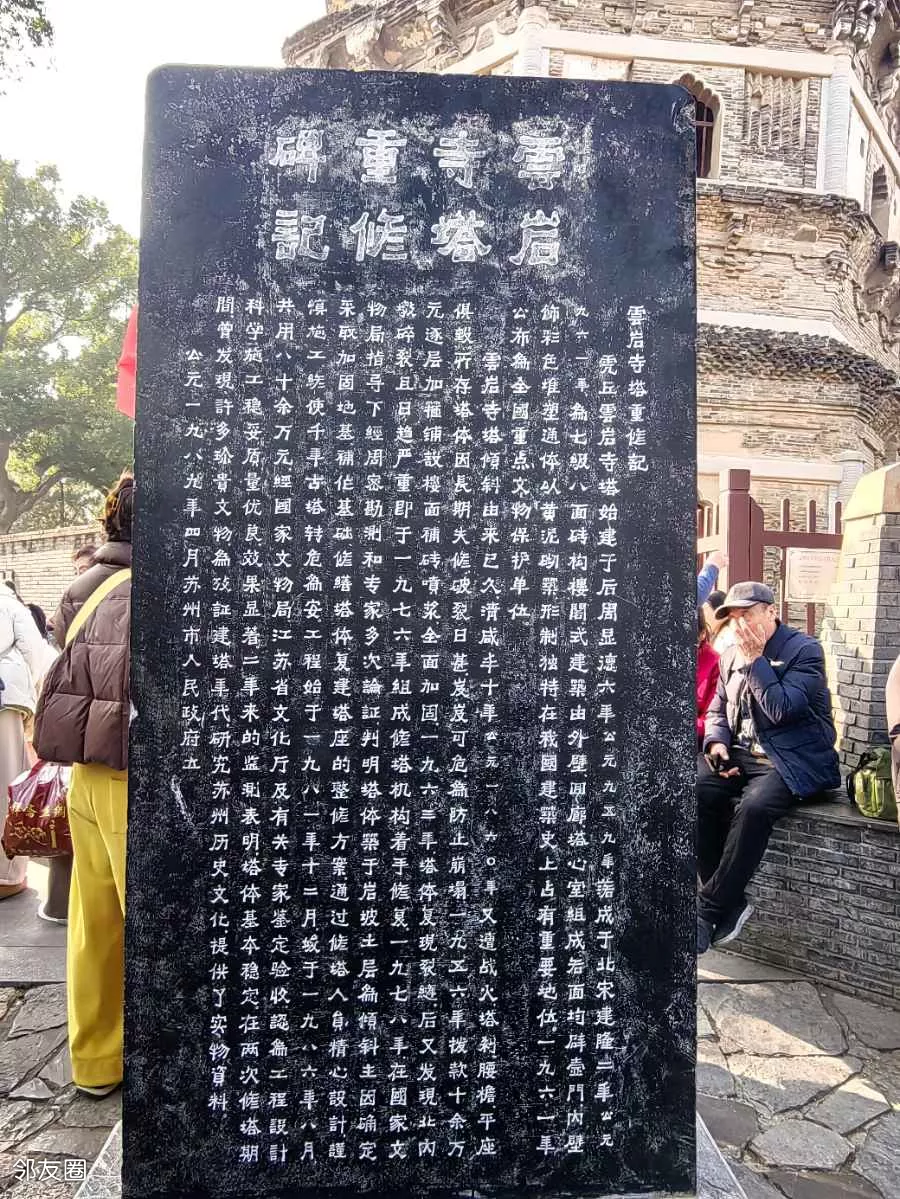 雲岩
寺塔
重修
碑記
雲岩寺塔重修記
虎丘雲岩寺塔始建于后周显德六年公元九五九年落成于北宋建隆二年公元
九六一年為七級八面砖构樓閣式建築由外壁回廊塔心室組成各面均辟壶門內壁
飾彩色堆塑通体以黄泥砌築形制独特在我國建築史上占有重要地位一九六一年
公布為全國重点文物保护单位
雲岩寺塔傾斜由来已久清咸丰十年公元一八六〇年又遭战火塔刹腰檐平座
俱毁所存塔体因長期失修破裂日甚岌岌可危為防止崩塌一九五六年拨款十余万
元逐层加箍鋪設樓面補砖喷浆全面加固一九六三年塔体复現裂縫后又发現北内
墩碎裂且日趋严重即于一九七六年組成修塔机构着手修复一九七八年在國家文
物局指导下經周密勘測和专家多次論証判明塔体築于岩坡土层為傾斜主因确定
采取加固地基補作基础修繕塔体复建塔座的整修方案通过修塔人員精心設計謹
慎施工終使千年古塔转危為安工程始于一九八一年十二月竣于一九八六年八月
共用八十余万元經國家文物局江苏省文化厅及有关专家鉴定验收認為工程設計
科学施工穩妥质量优良效果显著二年来的监測表明塔体基本稳定在两次修塔期
間曾发現許多珍貴文物為攷証建塔年代研究苏州历史文化提供了实物資料
公元一九八九年四月苏州市人民政府立
邻友圈